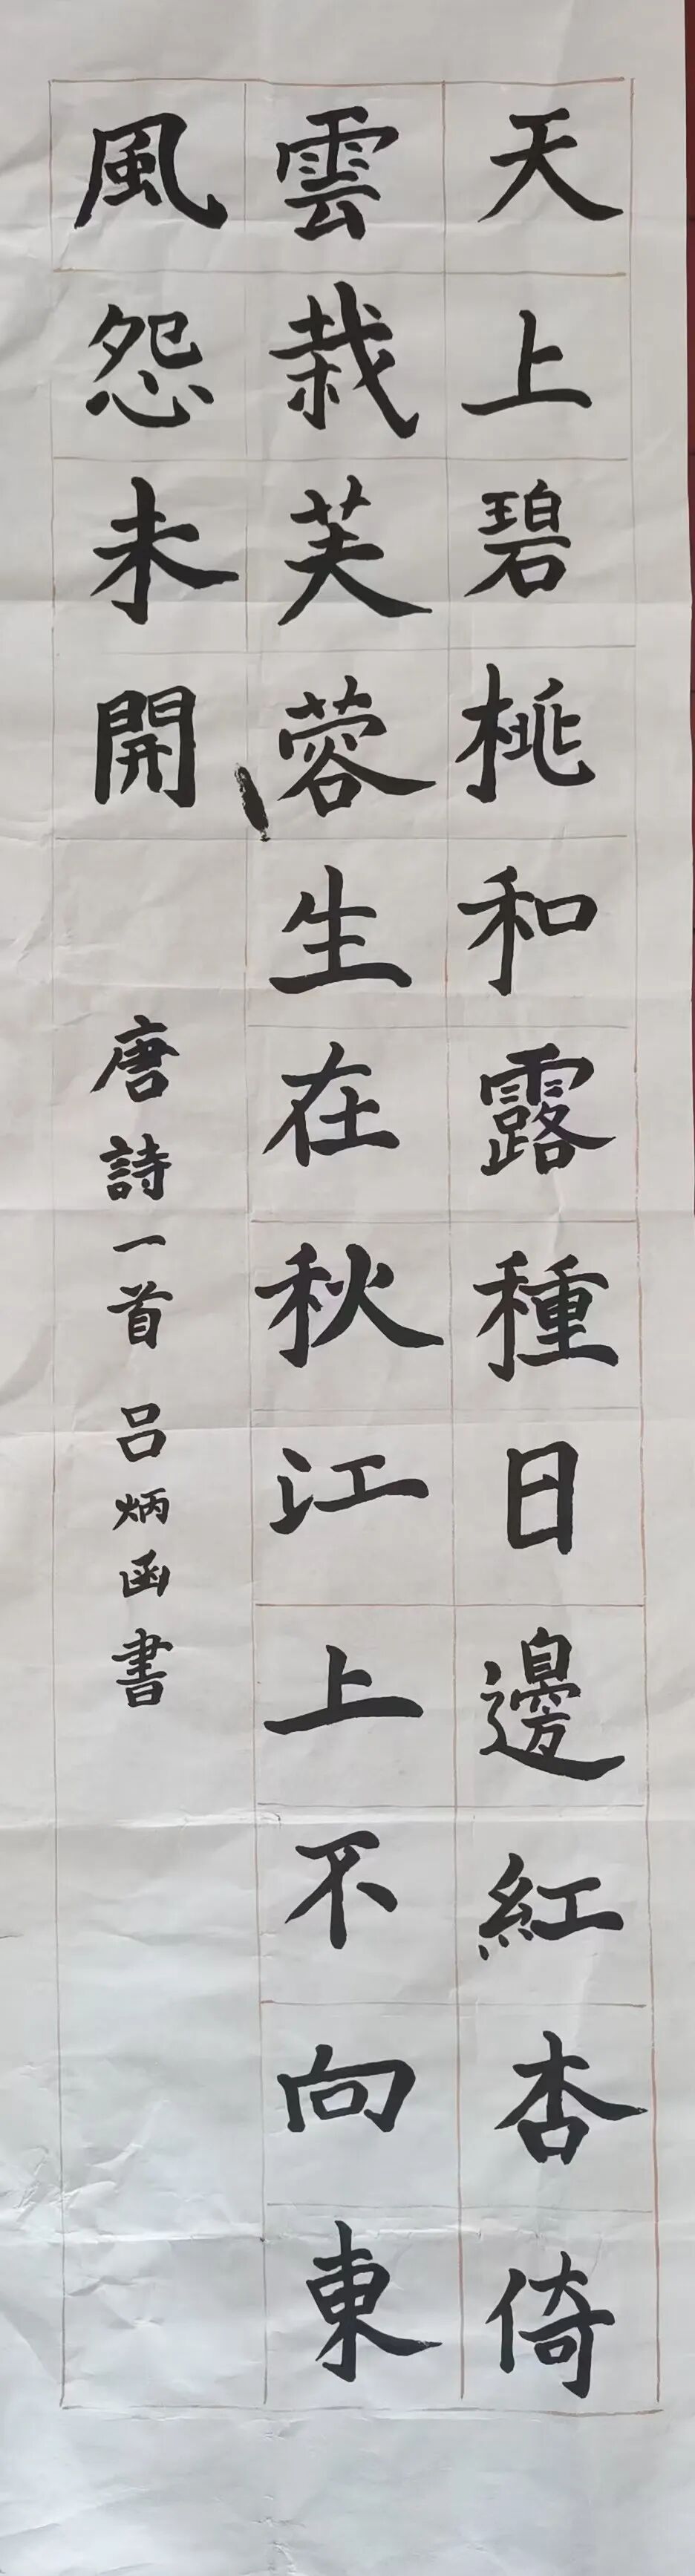 天上碧桃和露種日邊紅杏倚
雲栽芙蓉生在秋江上不向東
風怨未開
唐詩一首 吕炳函書